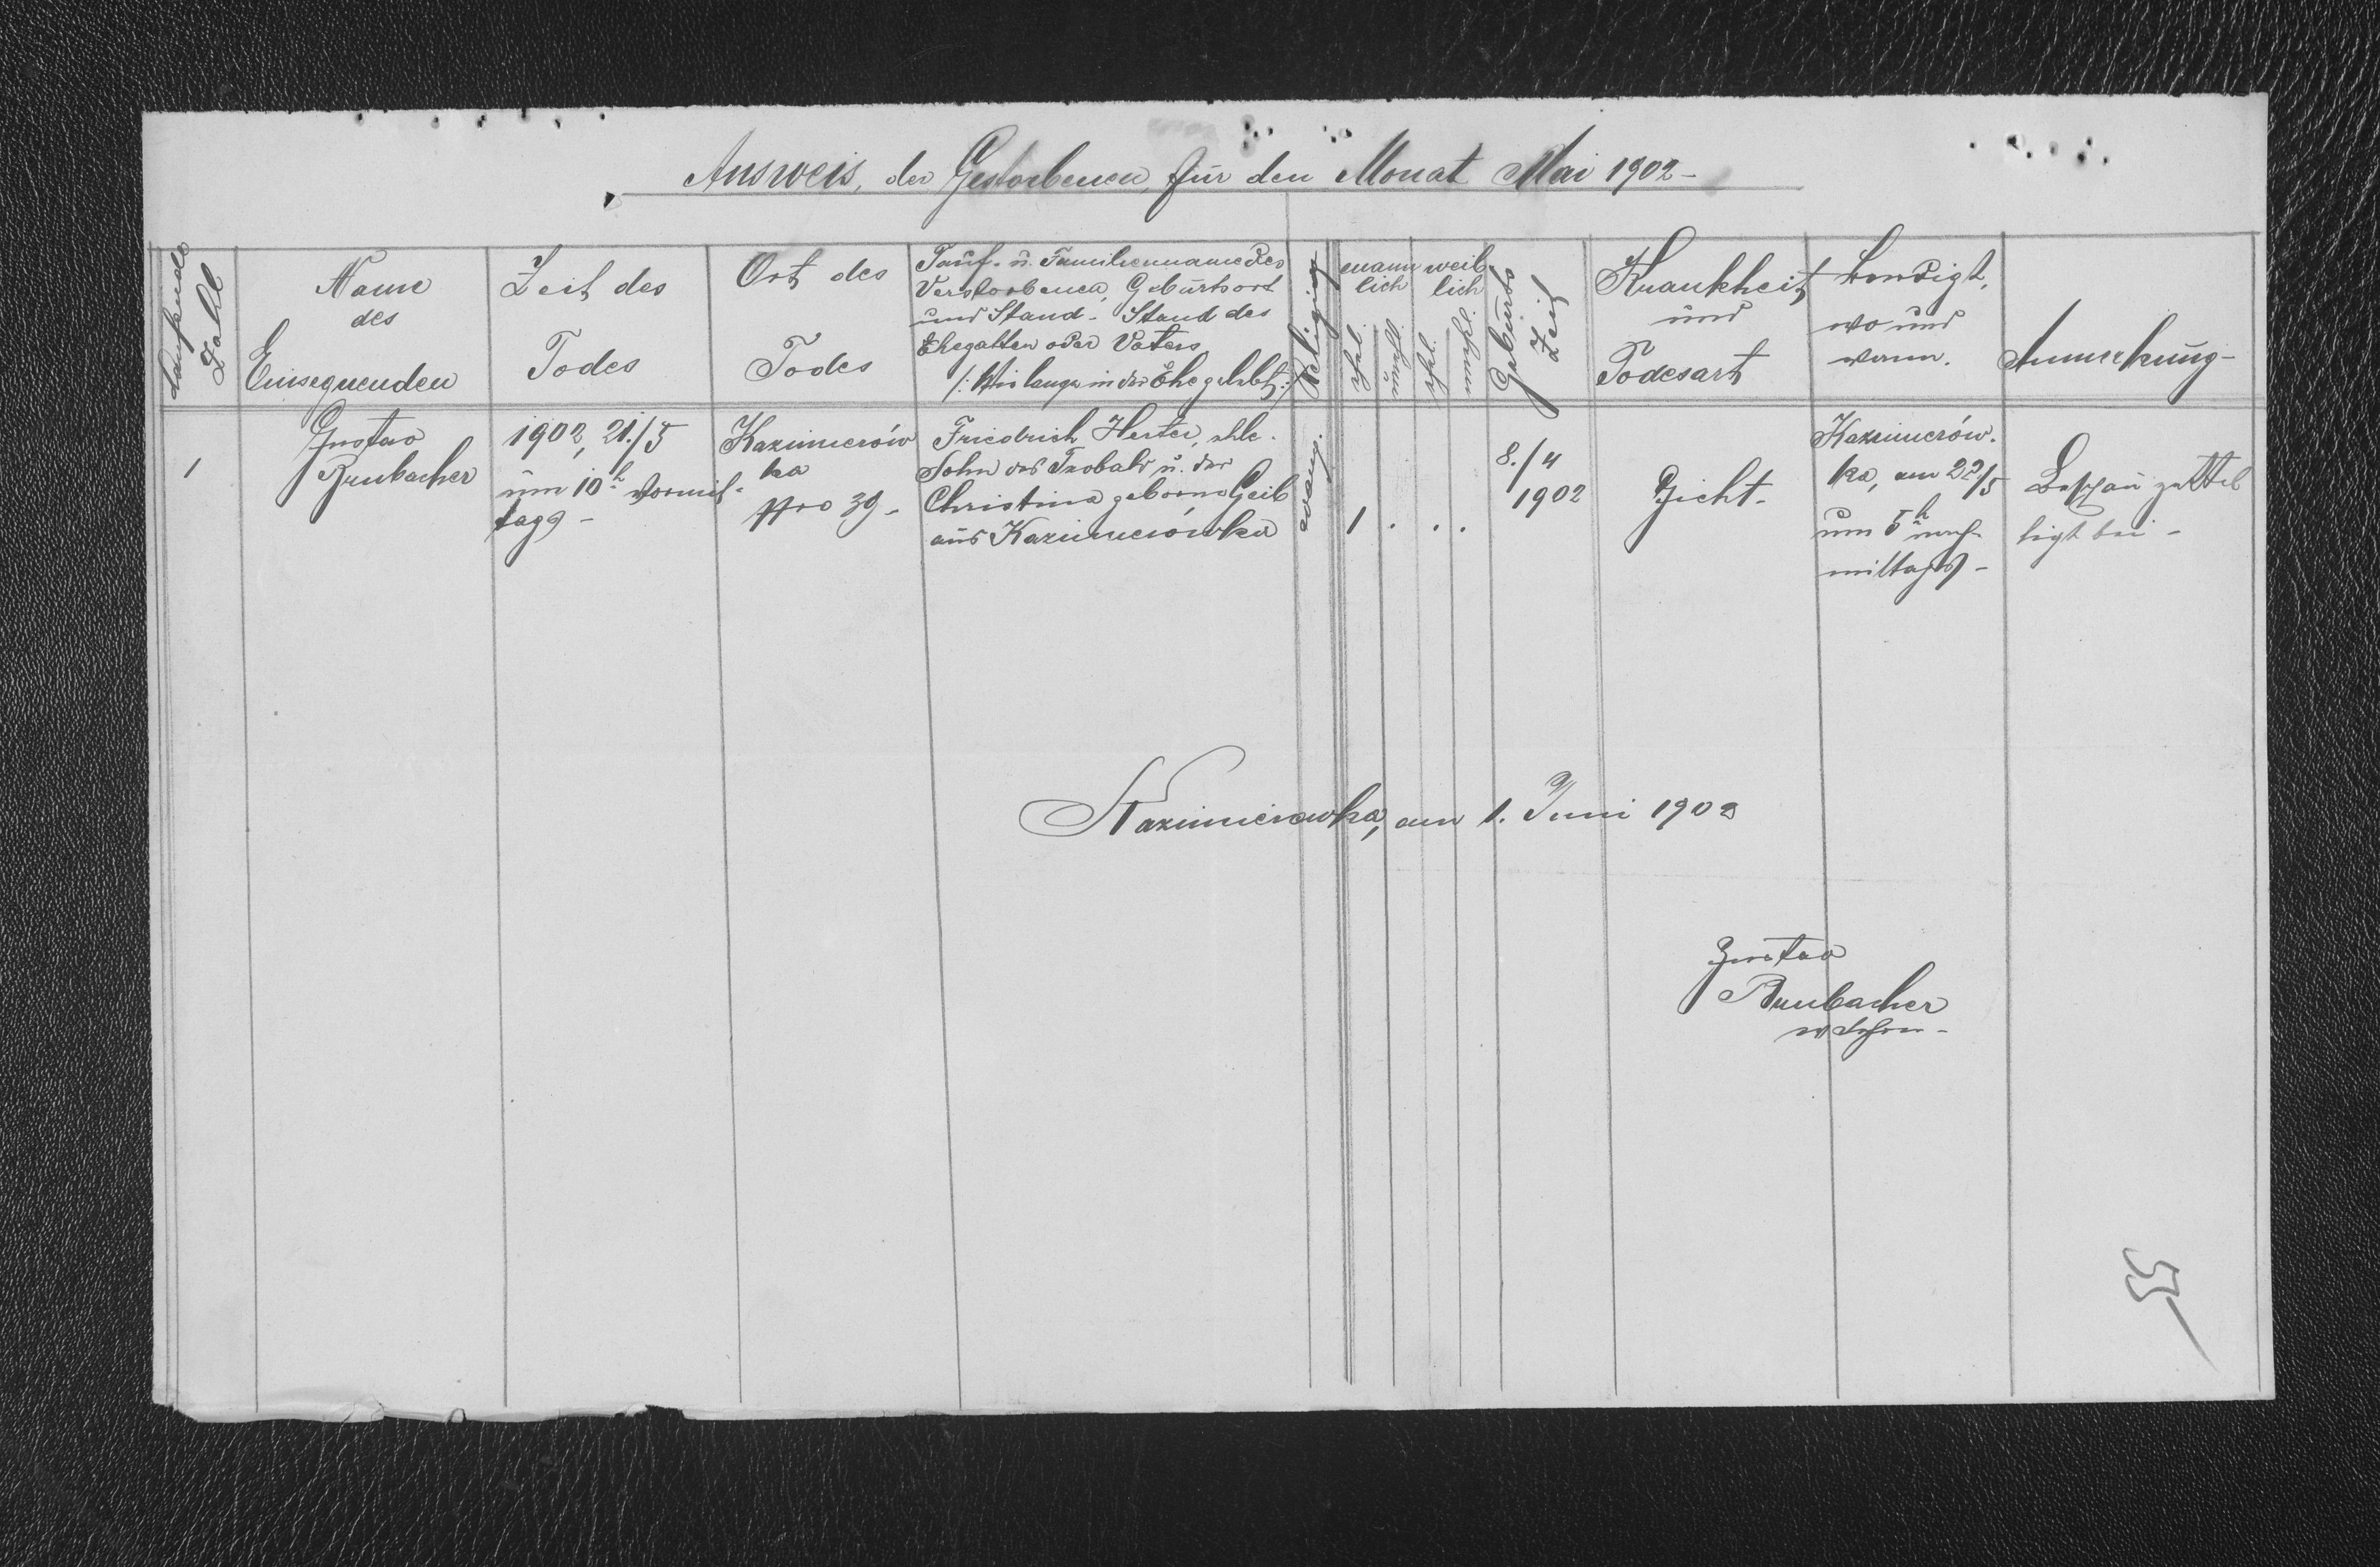 Ausweis, der Gestorbenen, für den Monat Mai 1902 -
Laufende Zahl
Name
des
Einsegnenden
Zeit des
Todes
Ort des
Todes
Tauf- u. Familienname des
Verstorbenen, Geburtsort
und Stand - Stand des
Ehegatten oder Vaters
/: Wie lange in der Ehe gelebt :/
Religion
männ
lich
weib-
lich
ehel.
unehl.
ehel.
unehl.
Geburts
Zeit
Krankheit
und
Todesart
Beerdigt,
wo und
wann.
Anmerkung -
1
Gustav
Brubacher
1902, 21./5
um 10 h Vormit-
tags -
Kazimierów
ka
Nro 39 -
Friedrich Herter, ehle.
Sohn des Teobald u. der
Christina geborne Geib
aus Kazimierówka
evang.
1 . . .
8./4
1902
Gicht -
Kazimierów-
ka, am 22/5
um 5 h nach-
mittags -
Beschauzettel
ligt bei -
Kazimierowka, am 1. Juni 1902
Gustav
Brubacher
55